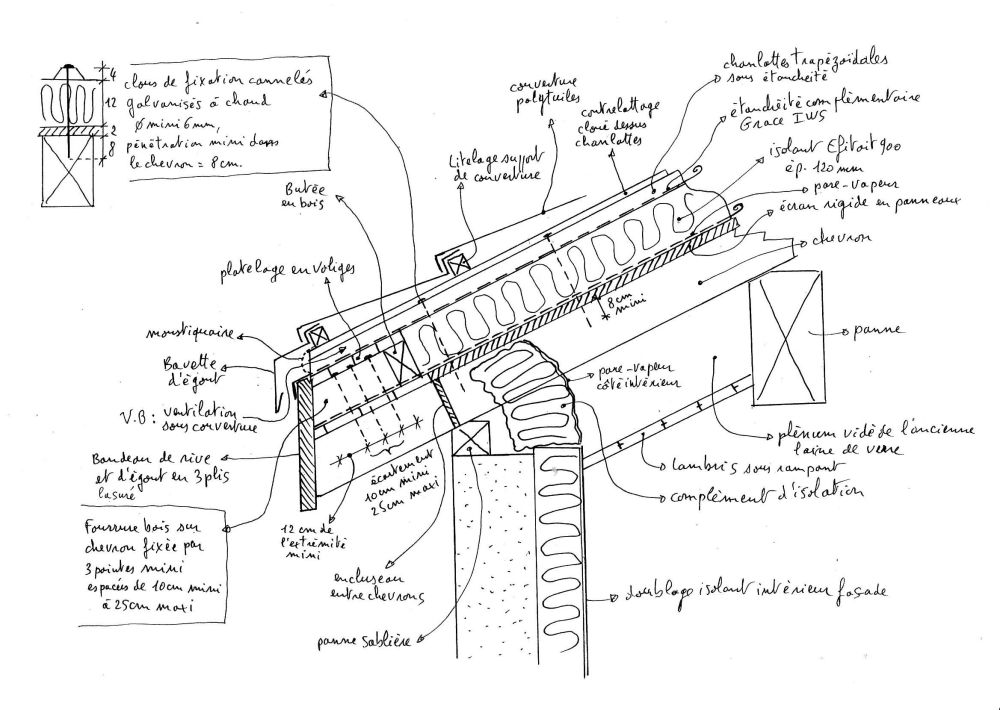 4
12
2
8
clous de fixation cannelés
galvanisés à chaud
Ø mini 6 mm,
pénétration mini dans
le chevron = 8 cm.
Butée
en bois
platelage en voliges
moustiquaire
Bavette
d'égout
V.B : ventilation
sous couverture
Bandeau de rive
et d'égout en 3 plis
lasuré
Fourrure bois sur
chevron fixée par
3 pointes mini
espacés de 10cm mini
à 25cm maxi
12 cm de
l'extrémité
mini
écartement
10cm mini
25cm maxi
encluseau
entre chevrons
panne sablière
Litelage support
de couverture
couverture
polytuiles
contrelattage
cloué dessus
chanlattes
chanlattes trapézoïdales
sous étanchéité
étanchéité complémentaire
Grace IWS
isolant Efitoit 900
ép. 120 mm
pare-vapeur
écran rigide en panneaux
chevron
8cm
mini
panne
pare-vapeur
côté intérieur
plénum vidé de l'ancienne
laine de verre
Lambris sous rampant
complément d'isolation
doublage isolant intérieur façade